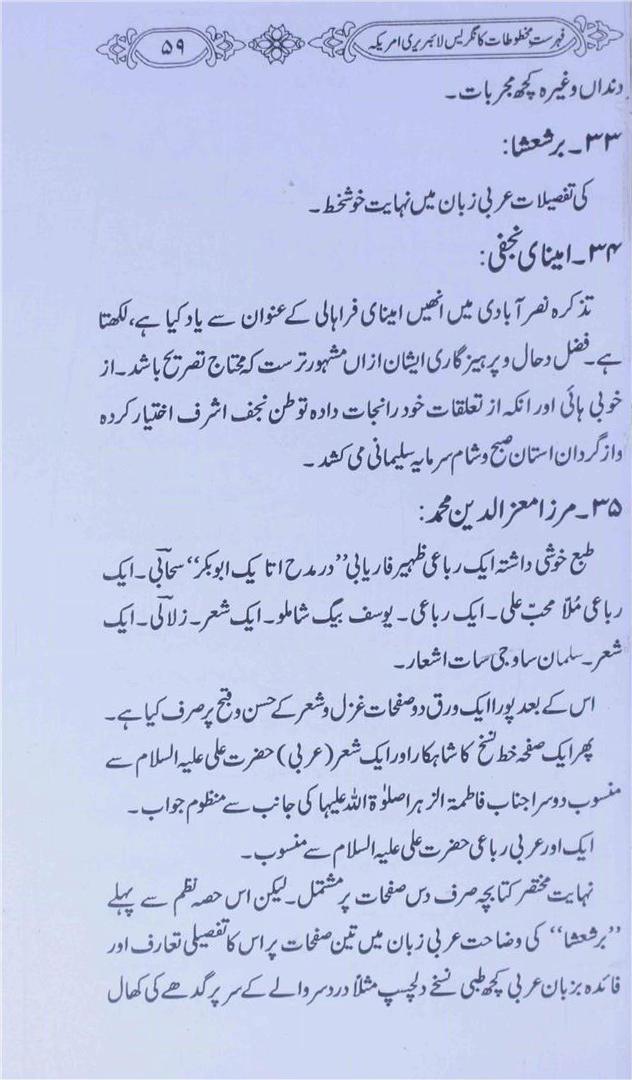 فہرست مخطوطات کانگریس لائبریری امریکہ
۵۹
دنداں وغیرہ کچھ مجربات۔
۳۳۔ برشعشا:
کی تفصیلات عربی زبان میں نہایت خوشخط۔
۳۴۔ امینای نجفی:
تذکرہ نصر آبادی میں انھیں امینای فراہالی کے عنوان سے یاد کیا ہے، لکھتا
ہے۔ فضل دحال و پرہیز گاری ایشان ازاں مشہور ترست کہ محتاج تصریح باشد۔ از
خوبی ہائی اور انکہ از تعلقات خود رانجات دادہ توطن نجف اشرف اختیار کردہ
واز گردان استان صبح و شام سرمایہ سلیمانی می کشد۔
۳۵۔ مرزا معز الدین محمد:
طبع خوشی داشتہ ایک رباعی ظہیر فاریابی ”در مدح اتا یک ابوبکر“ سحابی۔ ایک
رباعی مُلّا محبّ علی۔ ایک رباعی۔ یوسف بیگ شاملو۔ ایک شعر۔ زلالی۔ ایک
شعر۔ سلمان ساوجی سات اشعار۔
اس کے بعد پورا ایک ورق دو صفحات غزل و شعر کے حسن و قبح پر صرف کیا ہے۔
پھر ایک صفحہ خط نسخ کا شاہکار اور ایک شعر (عربی) حضرت علی علیہ السلام سے
منسوب دوسرا جناب فاطمۃ الزہرا صلوٰۃ اللہ علیہا کی جانب سے منظوم جواب۔
ایک اور عربی رباعی حضرت علی علیہ السلام سے منسوب۔
نہایت مختصر کتابچہ صرف دس صفحات پر مشتمل۔ لیکن اس حصہ نظم سے پہلے
”برشعشا“ کی وضاحت عربی زبان میں تین صفحات پر اس کا تفصیلی تعارف اور
فائدہ بزبان عربی کچھ طبی نسخے دلچسپ مثلاً درد سر والے کے سر پر گدھے کی کھال